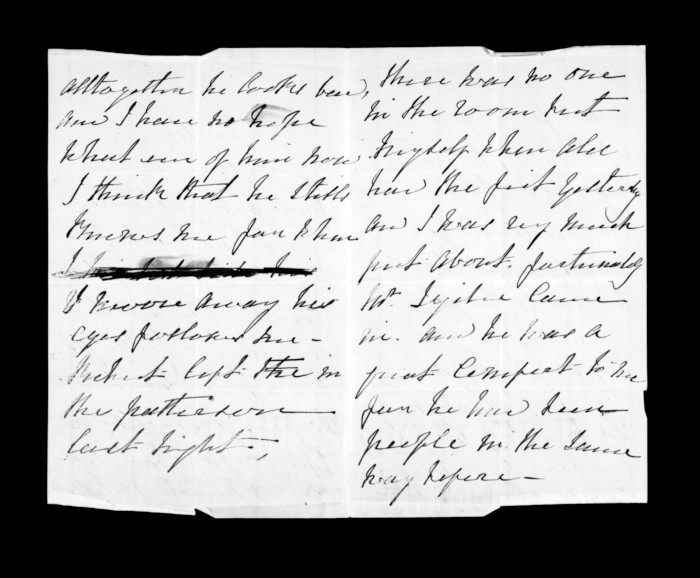 altogether he looks bad,
and I have no hope
what ever of him now
I think that he still
knows me for when
I
I move away his
eyes follows me -
left the in
the patterson
last night -
there was no one
in the room but
myself when Alec
had the fit yesterday
and I was very much
put about. fortunately
Mr. came
in. and he was a
great comfort to me
for he had seen
people in the same
way before -